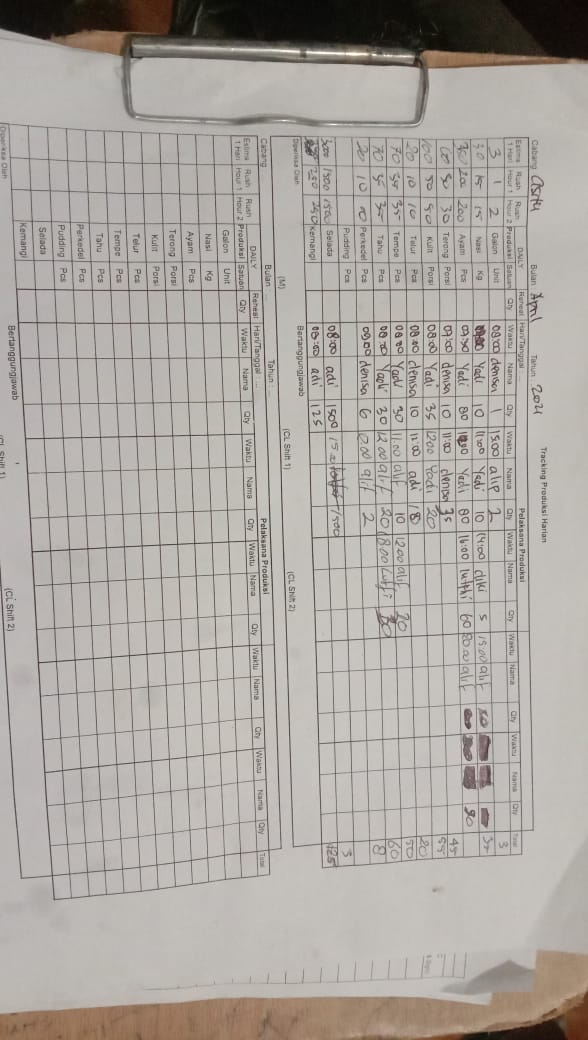 Tracking Produksi Harian
Cabang Cisitu Bulan April Tahun 2021
DAILY Reneal Hari/Tanggal Pelaksana Produksi
Estima 1 Hari Rush Hour 1 Rush Hour 2 Produksi Satuan Qty Waktu Nama Qty Waktu Nama Qty Waktu Nama Qty Waktu Nama Qty Waktu Nama Qty Total
3 1 2 Galon Unit 08:00 denisa 1 15:00 alip 2 3
30 15 15 Nasi Kg Yadi 10 11:00 Yadi 10 14:00 diki 5 15:00 alif 35
200 Ayam Pcs 07:30 Yadi 80 Yadi 80 16:00 luthfi 60 20:00 alif
60 30 30 Terong Porsi 07:00 denisa 10 11:00 denisa 35 45
100 50 50 Kulit Porsi 08:00 Yadi 35 12:00 Yadi 20 55
20 10 10 Telur Pcs 08:00 denisa 10 11:00 adi 10 20
70 35 35 Tempe Pcs 08:00 Yadi 30 11:00 alif 10 12:00 alif 20
70 35 35 Tahu Pcs 08:00 Yadi 30 12:00 alif 20 18:00 luthfi 60
20 10 10 Perkedel Pcs 09:00 denisa 6 12:00 alif 2 8
Pudding Pcs
3000 1500 1500 Selada 08:00 adi 1500 1500 3
250 250 Kemangi 08:00 adi 125 125
Diperiksa Oleh Bertanggungjawab
(M) (CL Shift 1) (CL Shift 2)
Cabang Bulan Tahun
DAILY Reneal Hari/Tanggal Pelaksana Produksi
Estima 1 Hari Rush Hour 1 Rush Hour 2 Produksi Satuan Qty Waktu Nama Qty Waktu Nama Qty Waktu Nama Qty Waktu Nama Qty Waktu Nama Qty Total
Galon Unit
Nasi Kg
Ayam Pcs
Terong Porsi
Kulit Porsi
Telur Pcs
Tempe Pcs
Tahu Pcs
Perkedel Pcs
Pudding Pcs
Selada
Kemangi
Diperiksa Oleh Bertanggungjawab
(CL Shift 1) (CL Shift 2)